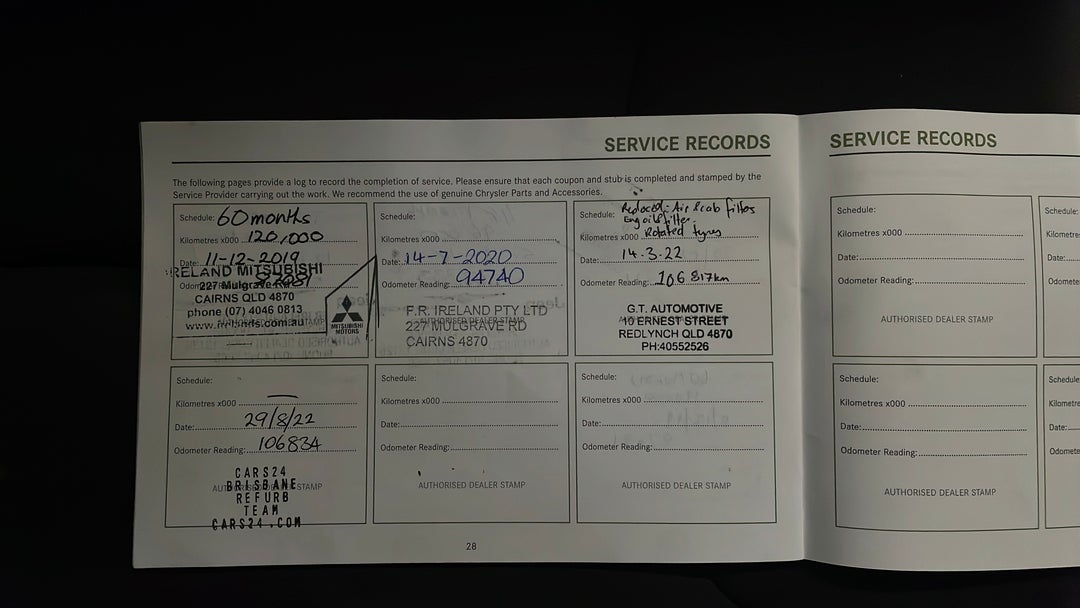 SERVICE RECORDS
The following pages provide a log to record the completion of service. Please ensure that each coupon and stub is completed and stamped by the
Service Provider carrying out the work. We recommend the use of genuine Chrysler Parts and Accessories.
Schedule: 60 months
Kilometres x000 120,000
Date: 11-12-2019
Odom
IRELAND MITSUBISHI
227 Mulgrave Rd
CAIRNS QLD 4870
phone (07) 4046 0813
MITSUBISHI
MOTORS
Schedule:
Kilometres x000
Date: 14-7-2020
Odometer Reading: 94740
AUTHORISED DEALER STAMP
F.R. IRELAND PTY LTD
227 MULGRAVE RD
CAIRNS 4870
Schedule: Replaced:- Air & cab filters
Eng oil & filter.
Kilometres x000 Rotated tyres
Date: 14.3.22
Odometer Reading: 106 817km
G.T. AUTOMOTIVE
10 ERNEST STREET
REDLYNCH QLD 4870
PH:40552526
Schedule:
Kilometres x000 —
Date: 29/8/22
Odometer Reading: 106834
AUTHORISED DEALER STAMP
CARS24
BRISBANE
REFURB
TEAM
CARS24.COM
Schedule:
Kilometres x000
Date:
Odometer Reading:
AUTHORISED DEALER STAMP
Schedule:
Kilometres x000
Date:
Odometer Reading:
AUTHORISED DEALER STAMP
28
SERVICE RECORDS
Schedule:
Kilometres x000
Date:
Odometer Reading:
AUTHORISED DEALER STAMP
Schedule:
Kilometre
Date:
Odomete
Schedule:
Kilometres x000
Date:
Odometer Reading:
AUTHORISED DEALER STAMP
Schedule
Kilometre
Date:
Odomete